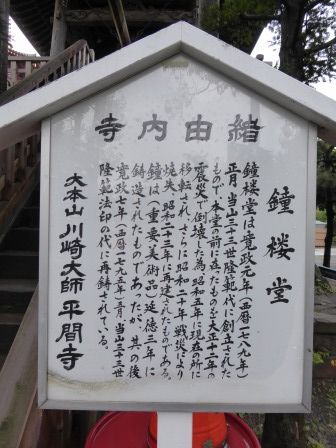 緒由内寺
鐘楼堂
鐘楼堂は寛政元年(西暦一七八九年)
正月、当山三十三世隆範代に創立された
もので、本堂の前に在ったものを大正十二年の
震災で倒壊した為、昭和五年に現在の所に
移転され、さらに昭和二十年戦災により
焼失、昭和二十三年に再建されたものである。
鐘は(重要美術品)延徳三年に
鋳造されたものであったが、其の後
寛政七年(西暦一七九五年)三月、当山三十三世
隆範法印の代に再鋳されている。
大本山 川崎大師 平間寺